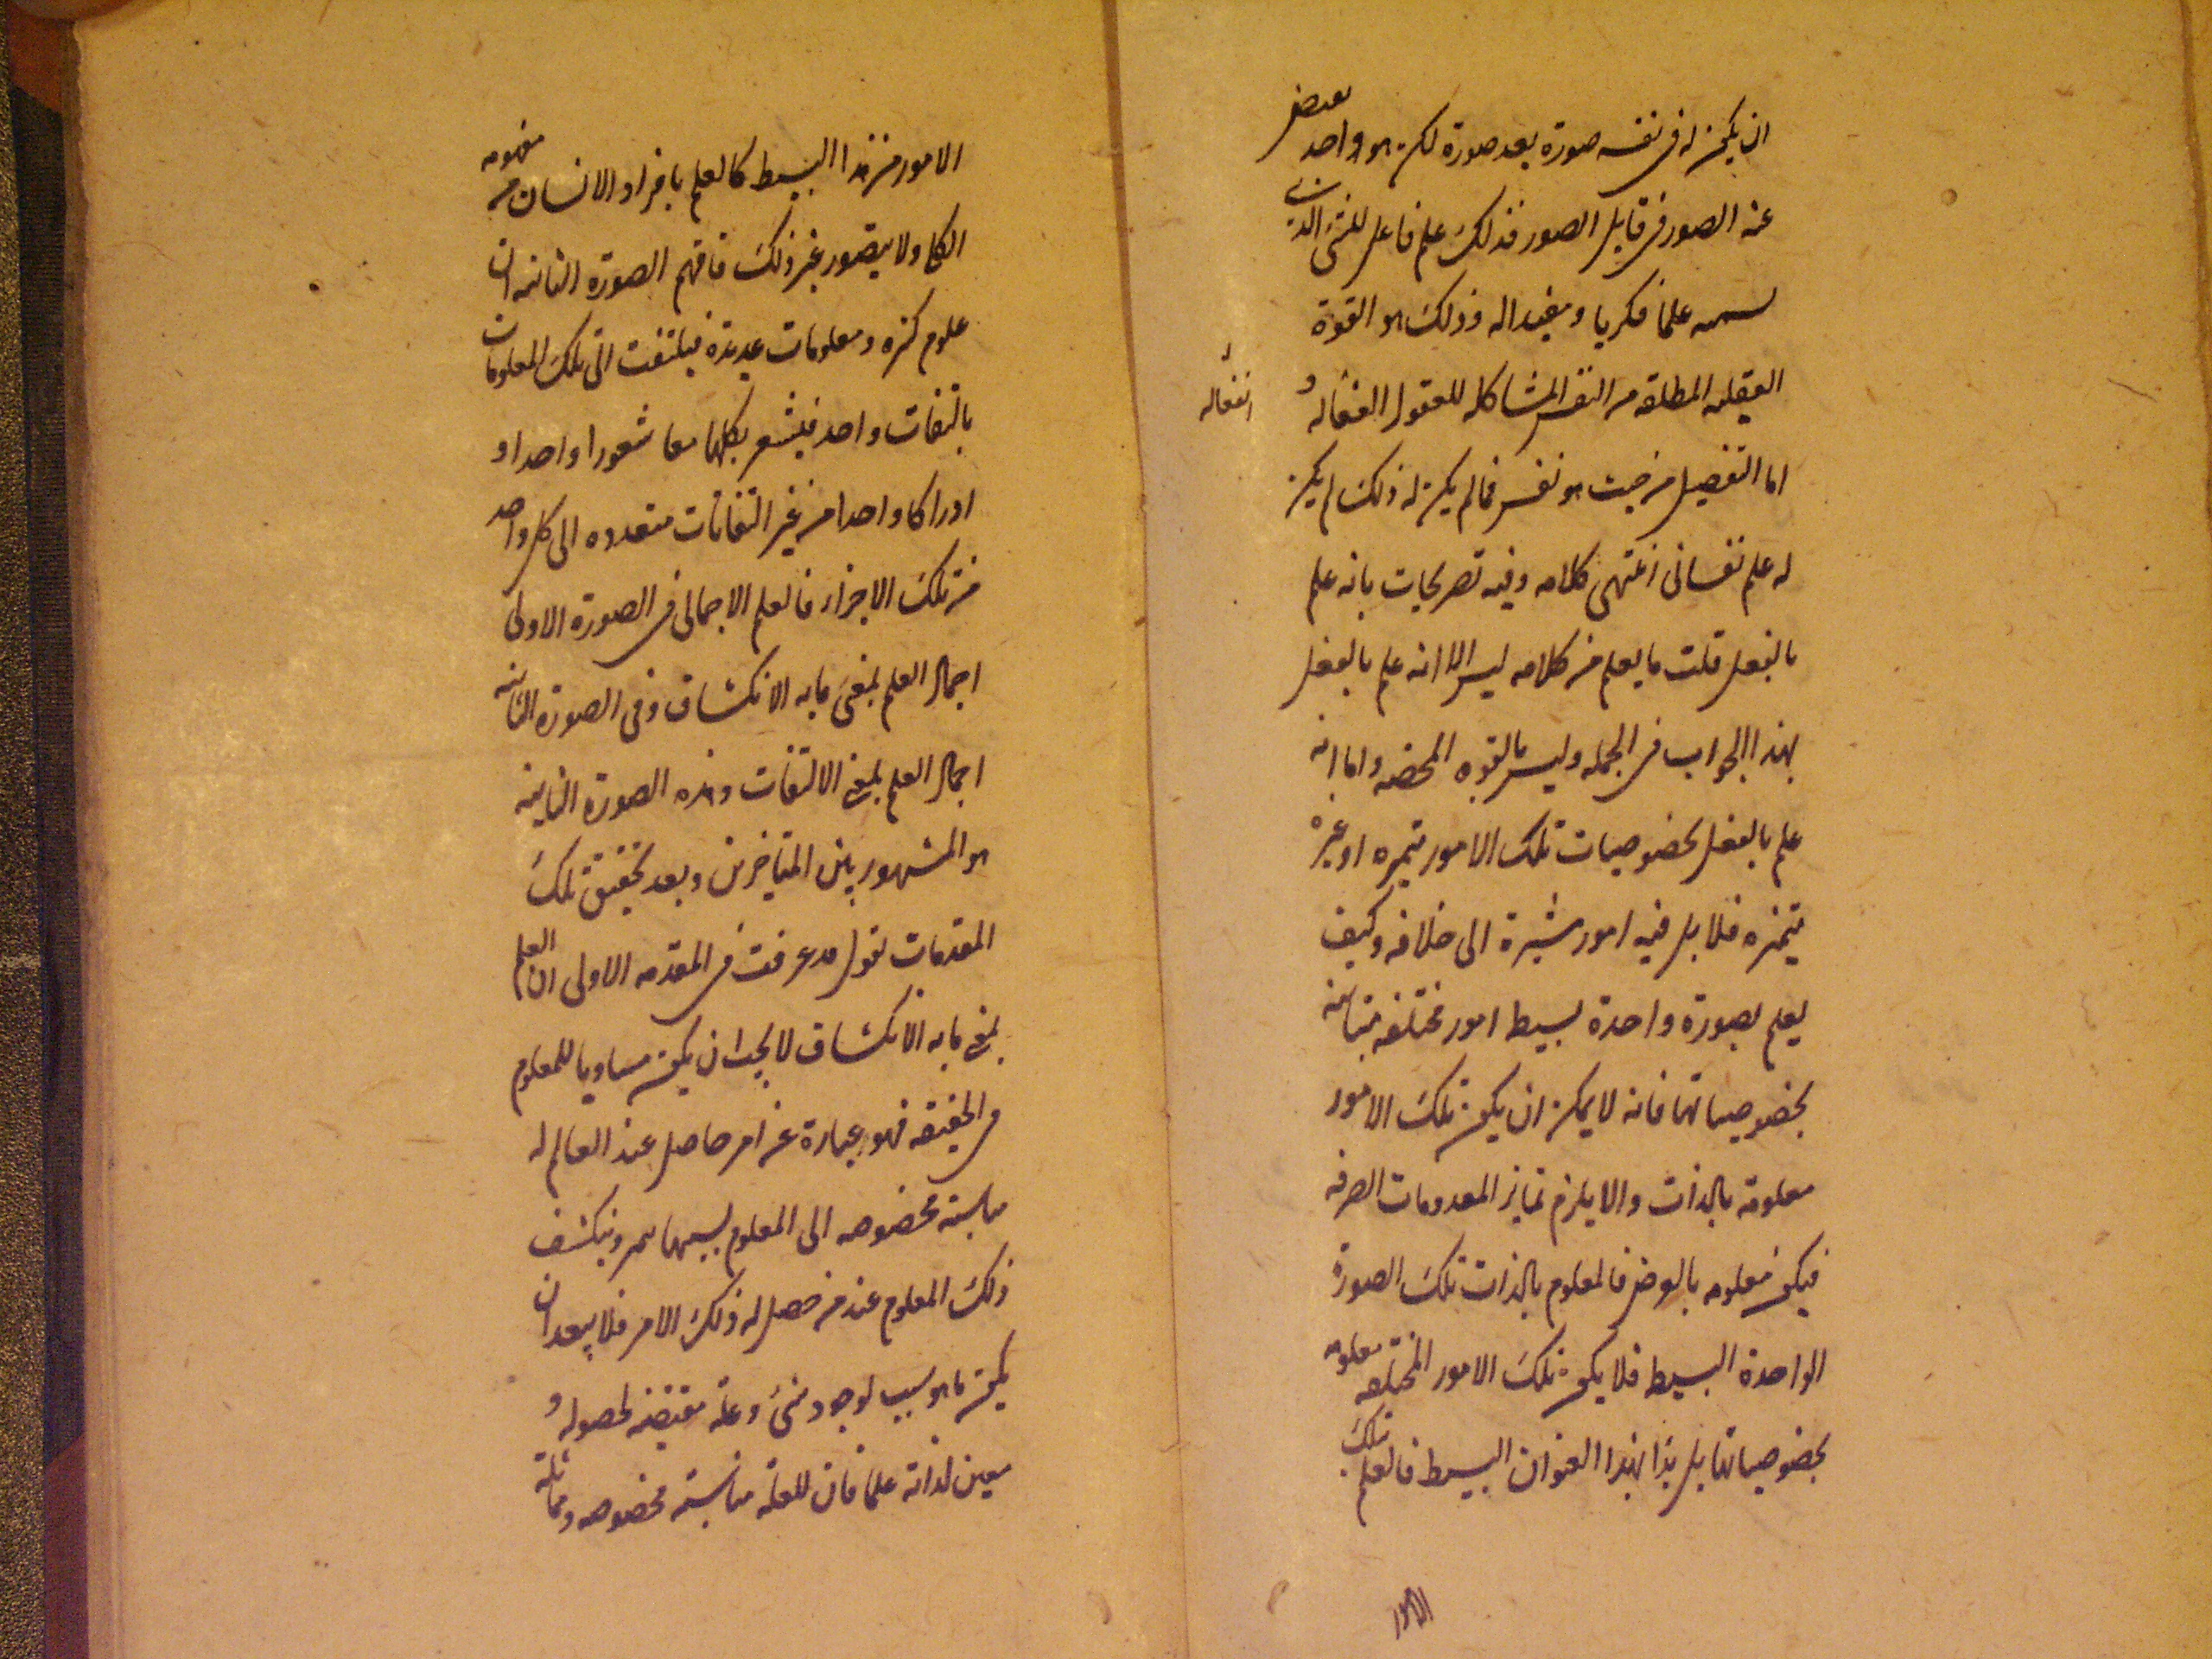 ان يكون له فى نفسه صورة بعد صورة لكن هو واحد يفيض
عنه الصور فى قابل الصور فذلك علم فاعل للشئ الذى
نسميه علما فكريا ومفيدا له وذلك هو القوة
العقلية المطلقة من النفس المشاكلة للعقول الفعالة و
الفعالة
اما التفصيل من حيث هو نفس فما لم يكن له ذلك لم يكن
له علم نفسانى انتهى كلامه وفيه تصريحات بانه علم
بالفعل قلت ما يعلم من كلامه ليس الا انه علم بالفعل
بهذا الجواب فى الجملة وليس بالقوة المحضة واما انه
علم بالفعل بخصوصيات تلك الامور متميزه او غيره
متميزه فلا بل فيه امور مشيرة الى خلافه وكيف
يعلم بصورة واحدة بسيط امور مختلفه متباينه
بخصوصياتها فانه لا يمكن ان يكون تلك الامور
معلومة بالذات والا يلزم تمايز المعدومات الصرفه
فيكون معلومه بالعرض فالمعلوم بالذات تلك الصورة
الواحدة البسيط فلا يكون تلك الامور المختلفه معلومه
بخصوصياتها بل بهذا العنوان البسيط فالعلم بتلك
الامور
الامور من هذا البسيط كالعلم بافراد الانسان من مفهومه
الكلى ولا يتصور غير ذلك فافهم الصورة الثانيه ان
علوم كثيره ومعلومات عديدة فيلتفت الى تلك المعلومات
بالتفات واحد فيشعر بكلها معا شعورا واحدا و
ادراكا واحدا من غير التفاتات متعدده الى كل واحد
من تلك الاجزاء فالعلم الاجمالى فى الصورة الاولى
اجمال العلم بمعنى ما به الانكشاف وفى الصورة الثانيه
اجمال العلم بمعنى الالتفات وهذه الصورة الثانيه
هو المشهور بين المتاخرين وبعد تحقيق تلك
المقدمات نقول قد عرفت فى المقدمه الاولى ان العلم
بمعنى ما به الانكشاف لا يجب ان يكون مساويا للمعلوم
فى الحقيقه فهو عبارة عن امر حاصل عند العالم له
مناسبة مخصوصه الى المعلوم بسببها وينكشف
ذلك المعلوم عند من حصل له ذلك الامر فلا يبعد ان
يكون ما هو سبب لوجود شئ وعلة مقتضيه لحصوله و
معين لذاته علما فان للعلة مناسبة مخصوصه ومماثلة